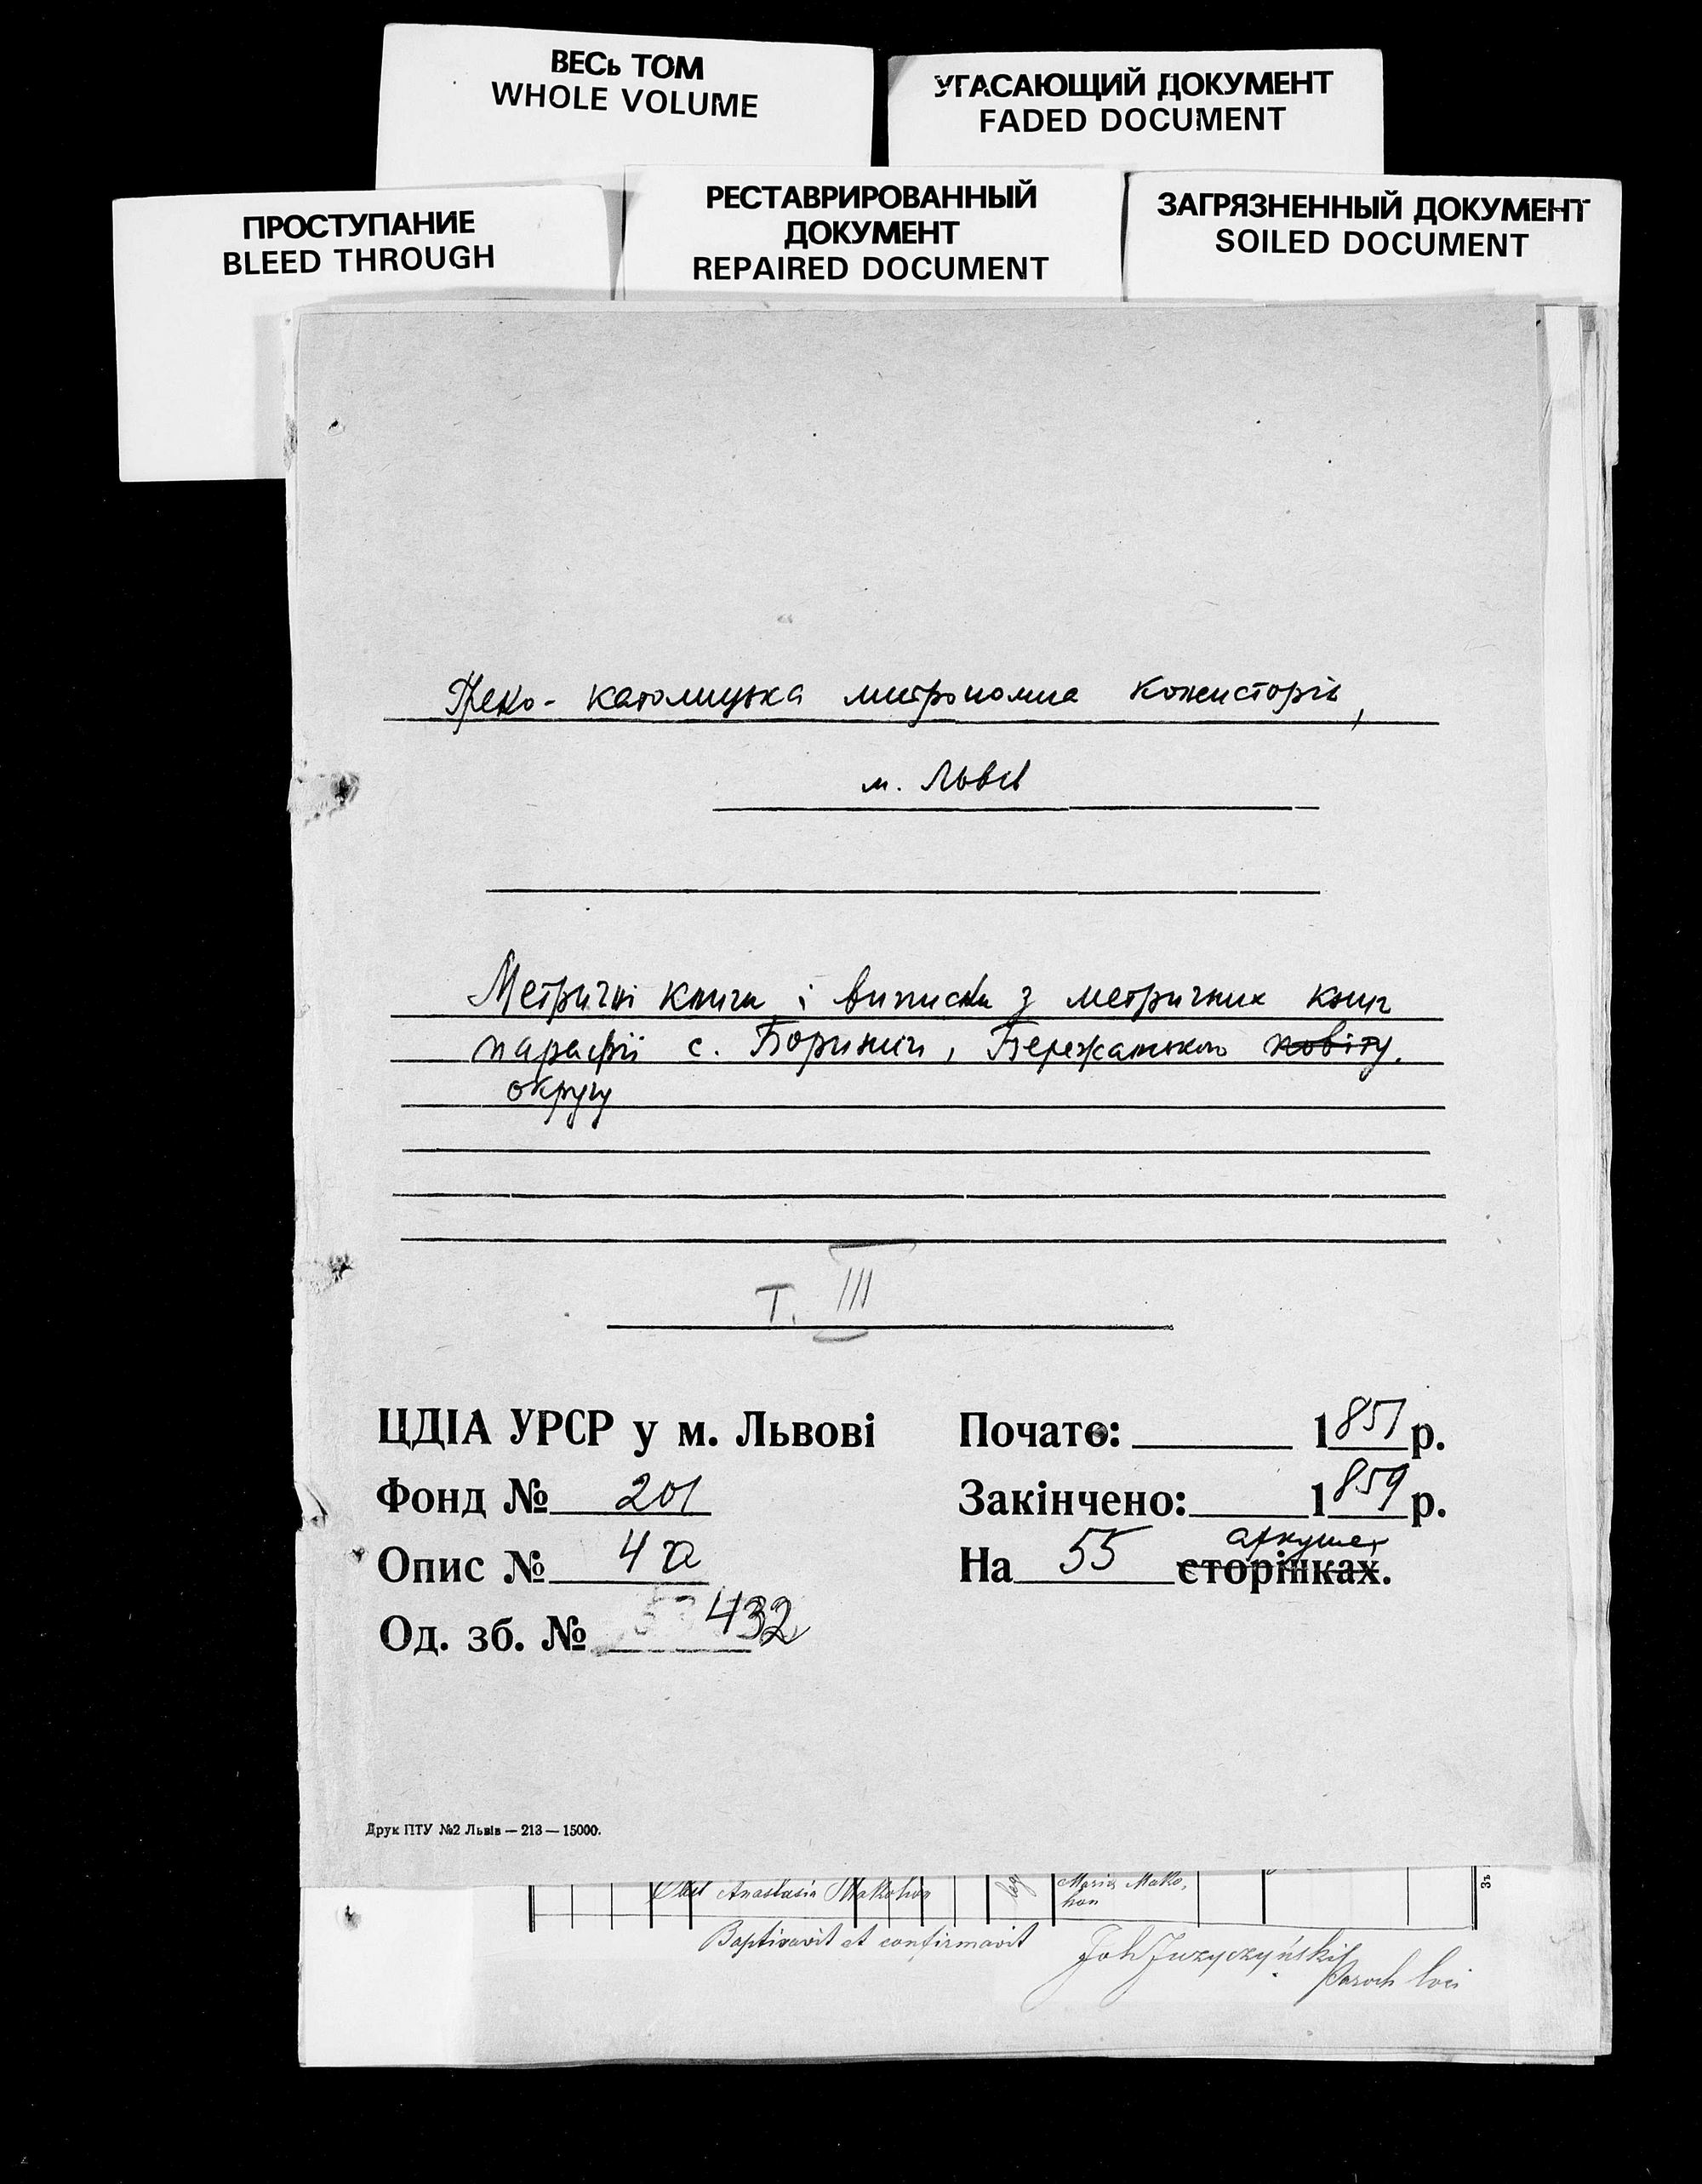 ВЕСЬ ТОМ
WHOLE VOLUME
УГАСАЮЩИЙ ДОКУМЕНТ
FADED DOCUMENT
ПРОСТУПАНИЕ
BLEED THROUGH
РЕСТАВРИРОВАННЫЙ
ДОКУМЕНТ
REPAIRED DOCUMENT
ЗАГРЯЗНЕННЫЙ ДОКУМЕНТ
SOILED DOCUMENT
Греко-католицька митрополича консисторія,
м. Львів
Метричні книги і виписки з метричних книг
парафії с. Бориничі, Бережанського повіту.
округу
Т. III
ЦДІА УРСР у м. Львові
Фонд № 201
Опис № 4а
Од. зб. № 432
Почато: 1857 р.
Закінчено: 1859 р.
аркушах
На 55 сторінках.
Друк ПТУ №2 Львів — 213 — 15000.
Anastasia Makohon
Maria Mako,
hon
Baptisavit et confirmavit
Joh Juzyczyński
Paroch loci